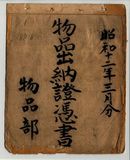 昭和十二年三月分
物品出納證憑書
物品部